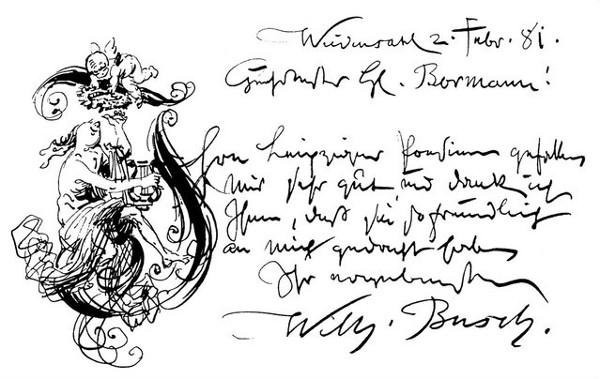 Wiedensahl 2. Febr. 81.
Geehrtester Hr. Bormann!
Leipziger gefallen
mir sehr gut, und danke ich
Ihnen, daß sie so freundlich
an mich gedacht haben
Ihr ergebenster
Wilh. Busch.